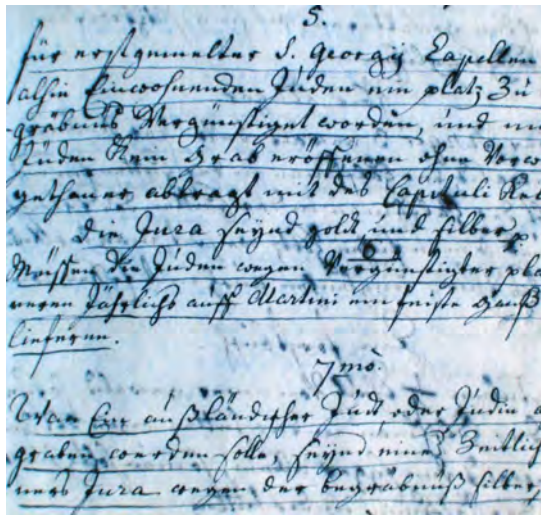 5.
für erstgemelter S. Georgij Capellen
alhin Einwohnenden Juden ein platz zu
gräbnus Vergünstiget worden, und
Juden Kein Grab eröffenen ohne
gethaner abtragt mit des Capituli
die Jura seynd goldt und silber
6
Müssen die Juden wegen Vergünstigter
Jährlichs auff Martini ein feiste Ganß
lieferen.
7mo.
Wan Ein außländischer Judt oder Judin
graben werden solle, seynd eines Zeitlich
Jura wegen der begräbnuß silber